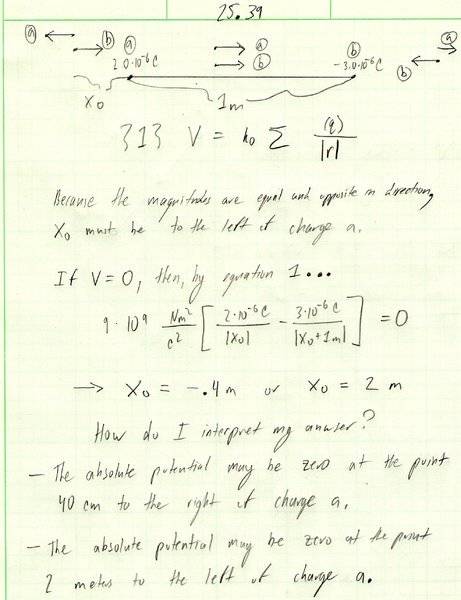 25.39
ⓐ ⓑ ⓐ ⓐ ⓑ ⓐ
2.0·10⁻⁶ C ⓑ -3.0·10⁻⁶ C ⓑ
X₀ 1m
313 V = k₀ Σ (q)/|r|
Because the magnitudes are equal and opposite in direction,
X₀ must be to the left of charge a.
If V=0, then, by equation 1...
9·10⁹ Nm²/c² [ 2·10⁻⁶ C/|X₀| - 3·10⁻⁶ C/|X₀+1m| ] = 0
→ X₀ = -.4 m or X₀ = 2 m
How do I interpret my answer?
- The absolute potential may be zero at the point
40 cm to the right of charge a.
- The absolute potential may be zero at the point
2 meters to the left of charge a.